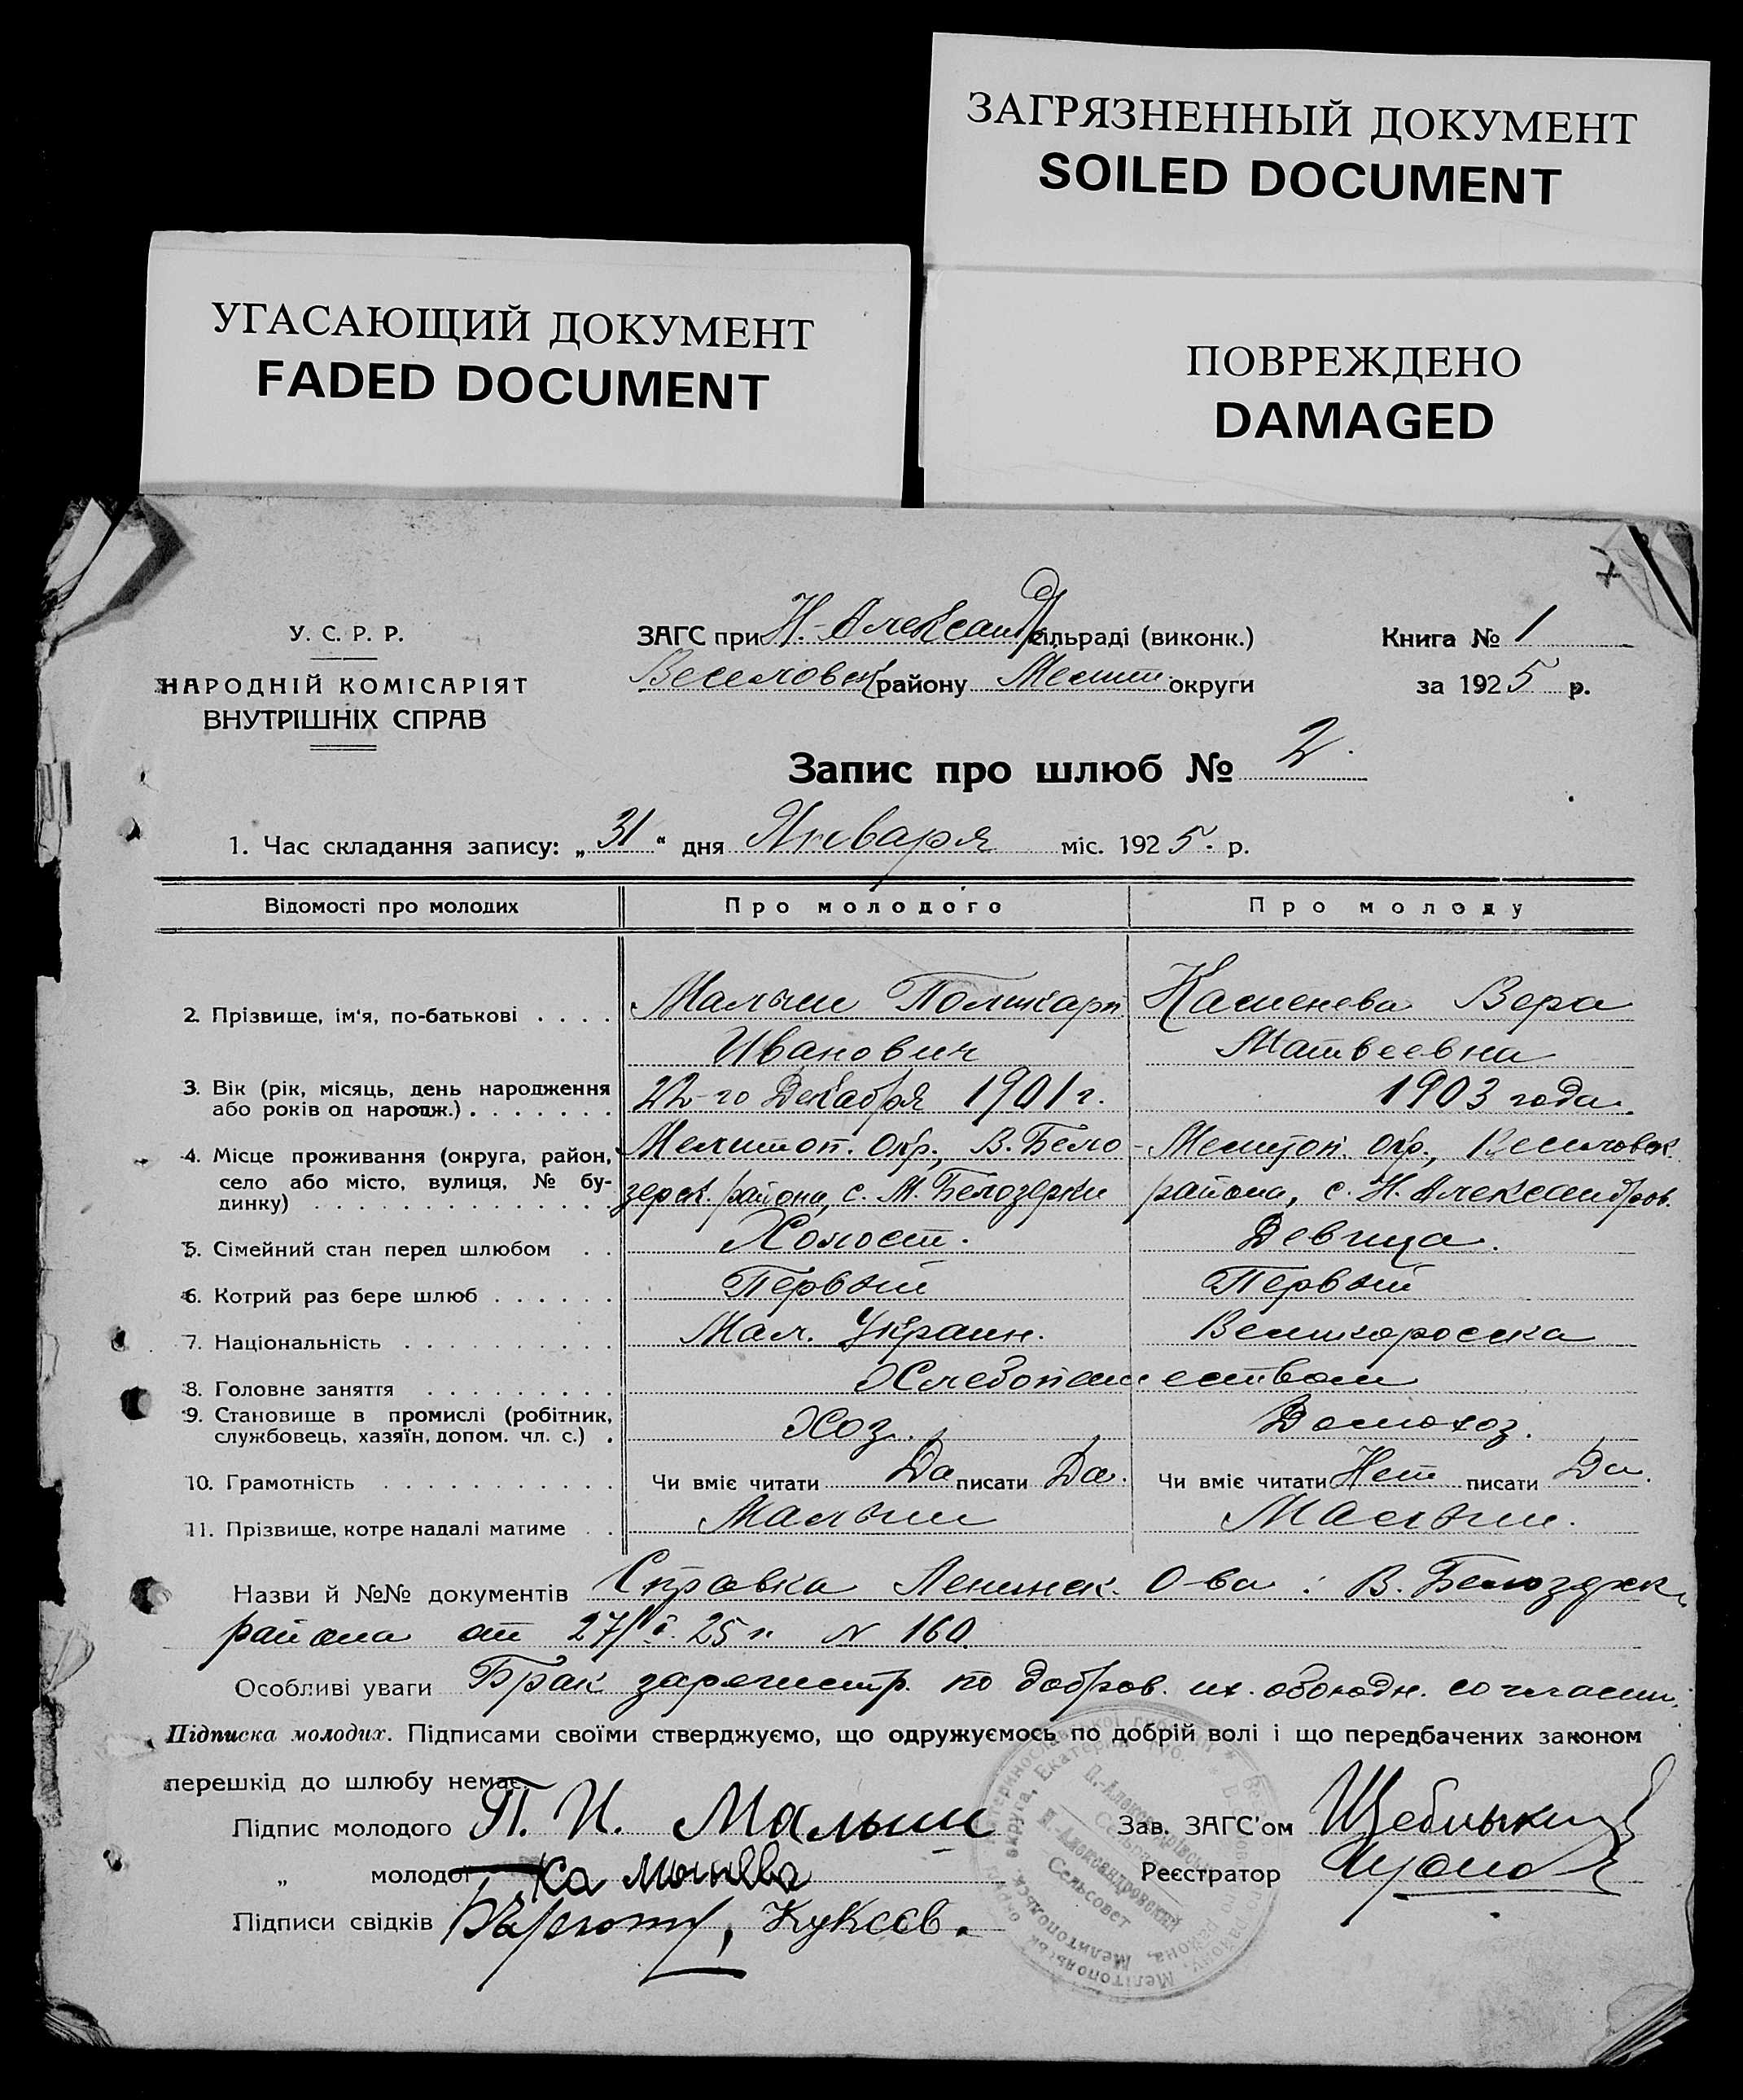 ЗАГРЯЗНЕННЫЙ ДОКУМЕНТ
SOILED DOCUMENT
УГАСАЮЩИЙ ДОКУМЕНТ
FADED DOCUMENT
ПОВРЕЖДЕНО
DAMAGED
У. С. Р. Р.
НАРОДНІЙ КОМІСАРІЯТ
ВНУТРІШНІХ СПРАВ
ЗАГС при Н.-Александр сільраді (виконк.)
Веселовск району Мелит. округи
Книга № 1
за 1925 р.
Запис про шлюб № 2.
1. Час складання запису: „31“ дня Января міс. 1925. р.
Відомості про молодих Про молодого Про молоду
2. Прізвище, ім'я, по-батькові . . . . Малыш Поликарп Каменева Вера
Иванович Матвеевна
3. Вік (рік, місяць, день народження або років од народж.) . . . . . . . 22-го Декабря 1901 г. 1903 года.
4. Місце проживання (округа, район, Мелитоп. окр., В. Бело- Мелитоп. окр., Веселовск.
село або місто, вулиця, № будинку) . . . зерск. района, с. М. Белозерки района, с. Н. Александров.
5. Сімейний стан перед шлюбом . . Холост. Девица.
6. Котрий раз бере шлюб . . . . . . Первый Первый
7. Національність . . . . . . . . . . Мал. Украин. Великоросска
8. Головне заняття . . . . . . . . . Хлебопашеством
9. Становище в промислі (робітник, службовець, хазяїн, допом. чл. с.) . Хоз. Домохоз.
10. Грамотність . . . . . . . . . . . Чи вміє читати Да писати Да. Чи вміє читати Нет писати Да.
11. Прізвище, котре надалі матиме . . Малыш Малыш.
Назви й №№ документів Справка Ленинск. О-ва: В. Белозерск.
района от 27/I. 25 г. N 160.
Особливі уваги Брак зарегистр. по добров. их. обоюдн. согласии.
Підписка молодих. Підписами своїми стверджуємо, що одружуємось по добрій волі і що передбачених законом
перешкід до шлюбу немає.
Підпис молодого П. И. Малыш Зав. ЗАГС'ом
„ молодої Реєстратор
Підписи свідків Куксов.
Н.-Александровский
Сельсовет